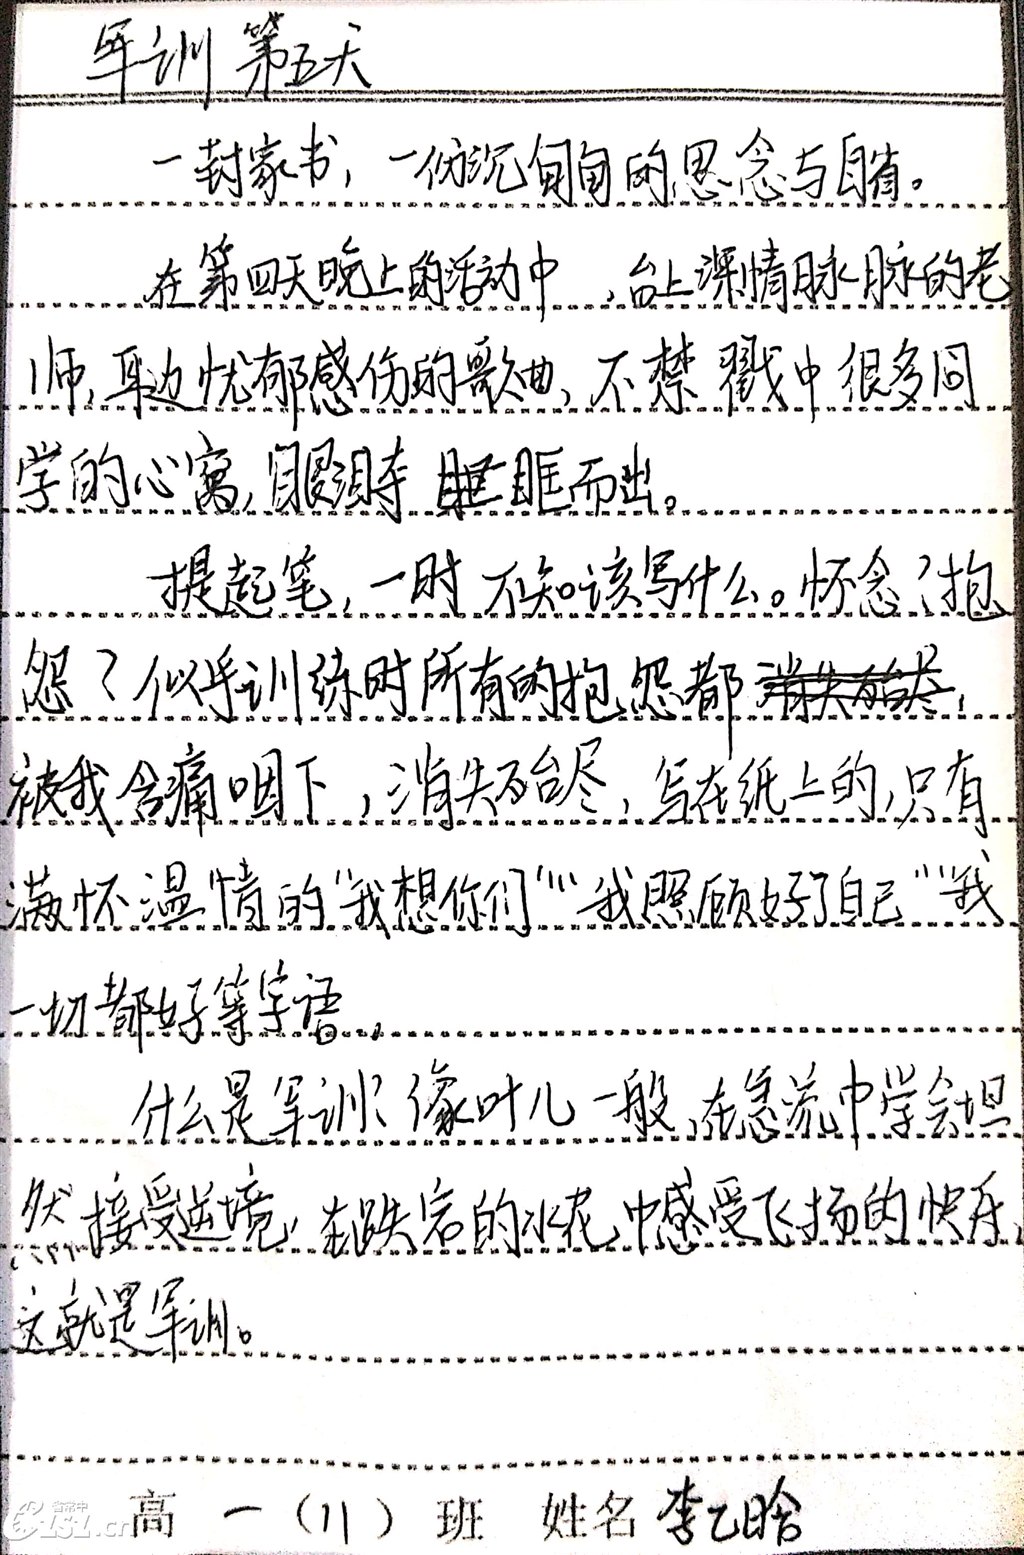 军训 第五天
一封家书，一份沉甸甸的思念与自省。
在第四天晚上的活动中，台上深情脉脉的老
师，耳边忧郁感伤的歌曲，不禁戳中很多同
学的心窝，眼泪夺眶而出。
提起笔，一时不知该写什么。怀念？抱
怨？似乎训练时所有的抱怨都消失殆尽，
被我含痛咽下，消失殆尽，写在纸上的，只有
满怀温情的“我想你们”“我照顾好了自己”“我
一切都好等字语，
什么是军训？像叶儿一般，在急流中学会坦
然接受逆境，在跌宕的水花中感受飞扬的快乐，
这就是军训。
高一（11）班 姓名 李乙晗
省常中
CISL.cn